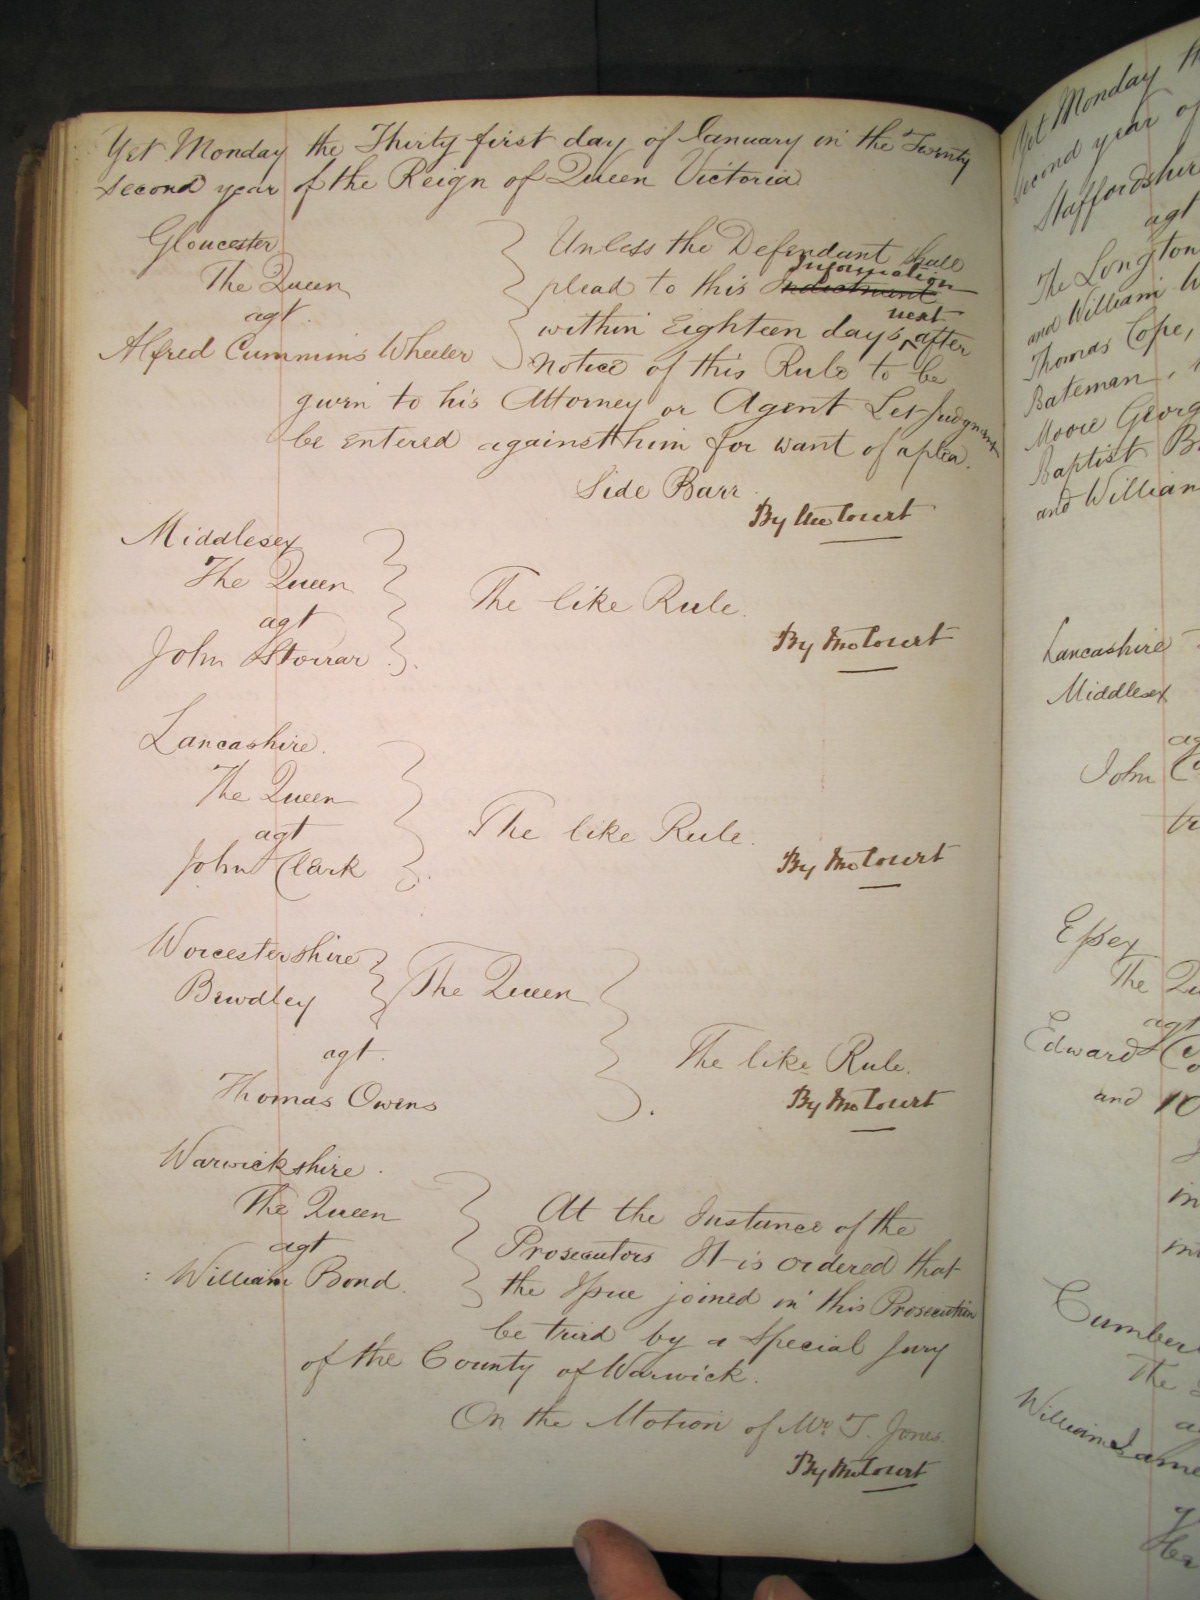 Yet Monday the Thirty first day of January in the Twenty
second year of the Reign of Queen Victoria
Gloucester
The Queen
agt.
Alfred Cummins Wheeler
Unless the Defendant shall
plead to this Indictment Information
within Eighteen days next after
Notice of this Rule to be
given to his Attorney or Agent Let Judgment
be entered against him for want of a plea.
Side Barr
By the Court
Middlesex
The Queen
agt
John Storrar
The like Rule.
By the Court
Lancashire.
The Queen
agt
John Clark
The like Rule.
By the Court
Worcestershire
Bewdley
The Queen
agt.
Thomas Owens
The like Rule.
By the Court
Warwickshire.
The Queen
agt
William Bond.
At the Instance of the
Prosecutors It is ordered that
the Issue joined in this Prosecution
be tried by a Special Jury
of the County of Warwick.
On the Motion of Mr. T. Jones.
By the Court
Yet Monday
second year of
Staffordshire
agt
The Longton
and William
Thomas Cope,
Bateman,
Moore George
Baptist
and William
Lancashire
Middlesex
John
Essex
The
agt
Edward
and 10
in
The
William James